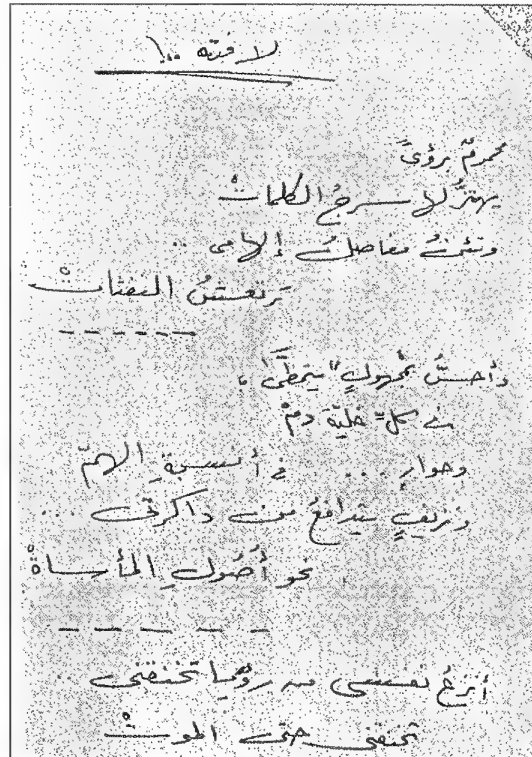 لافتة ١٠٠
محمومٌ برؤىً
يهتزُّ لها سرجُ الكلماتْ
وتئنُّ مفاصلُ إلهامي ..
ترتعشُ النفثاتْ
------
وأحسُّ بمجهولٍ "يتمطَّى" ،
في كلِّ خليّة دمْ
وحوارٍ ... في أنسجةِ الهمّ
ونزيفٍ يتدافعُ من ذاكرتي ...
نحو أُصُولِ المأساةْ
-----
أنزعُ نفسي من رؤيا تخنقني
تخنقني حتى الموتْ